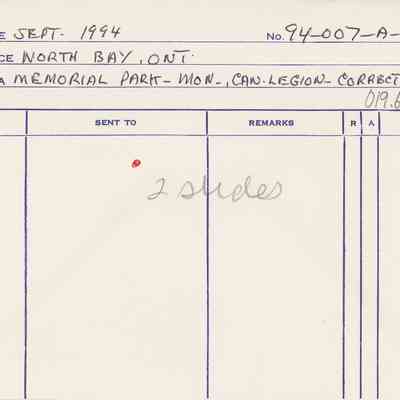 E SEPT. 1994 No. 94-007-A-
CE NORTH BAY, ONT.
A MEMORIAL PARK - MON -, CAN. LEGION - CORRECT
019.6
SENT TO REMARKS R A
2 slides